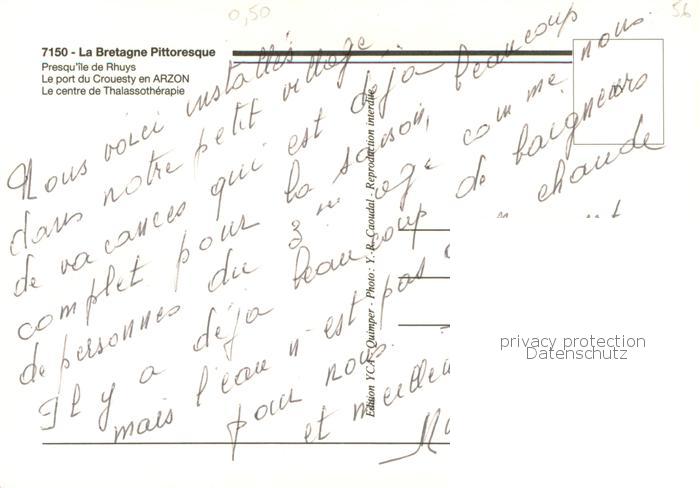 0,50
56
7150 - La Bretagne Pittoresque
Presqu'île de Rhuys
Le port du Crouesty en ARZON
Le centre de Thalassothérapie
Nous voici installés
dans notre petit village
de vacances qui est déjà beaucoup
complet pour la saison,
de personnes du 3me age comme nous.
Il y a déjà beaucoup de baigneurs
mais l'eau n'est pas chaude
pour nous.
et meilleu
Edition YCA - Quimper - Photo : Y.-R. Caoudal - Reproduction interdite
privacy protection
Datenschutz